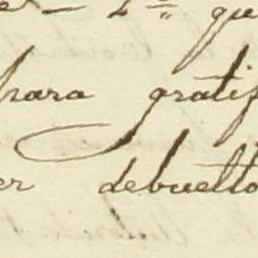 para gratif
er debuelto